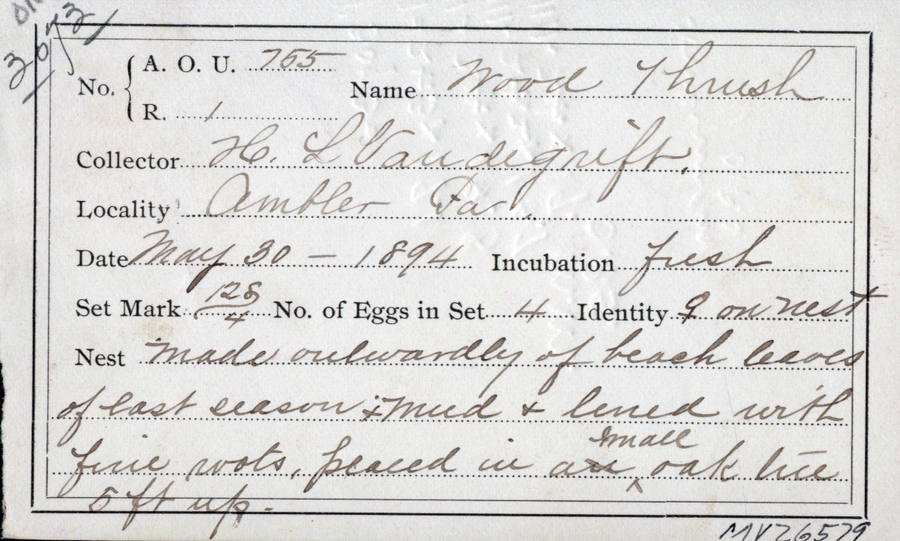 30731
No. { A. O. U. 755
R. 1
Name Wood Thrush
Collector H. L Vandegrift.
Locality Ambler Pa.
Date May 30 - 1894 Incubation fresh
Set Mark 128/4 No. of Eggs in Set 4 Identity ♀ on nest
Nest made outwardly of beach leaves
of last season & mud & lined with
fine roots, placed in an small oak tree
5 ft up.
MVZ6579